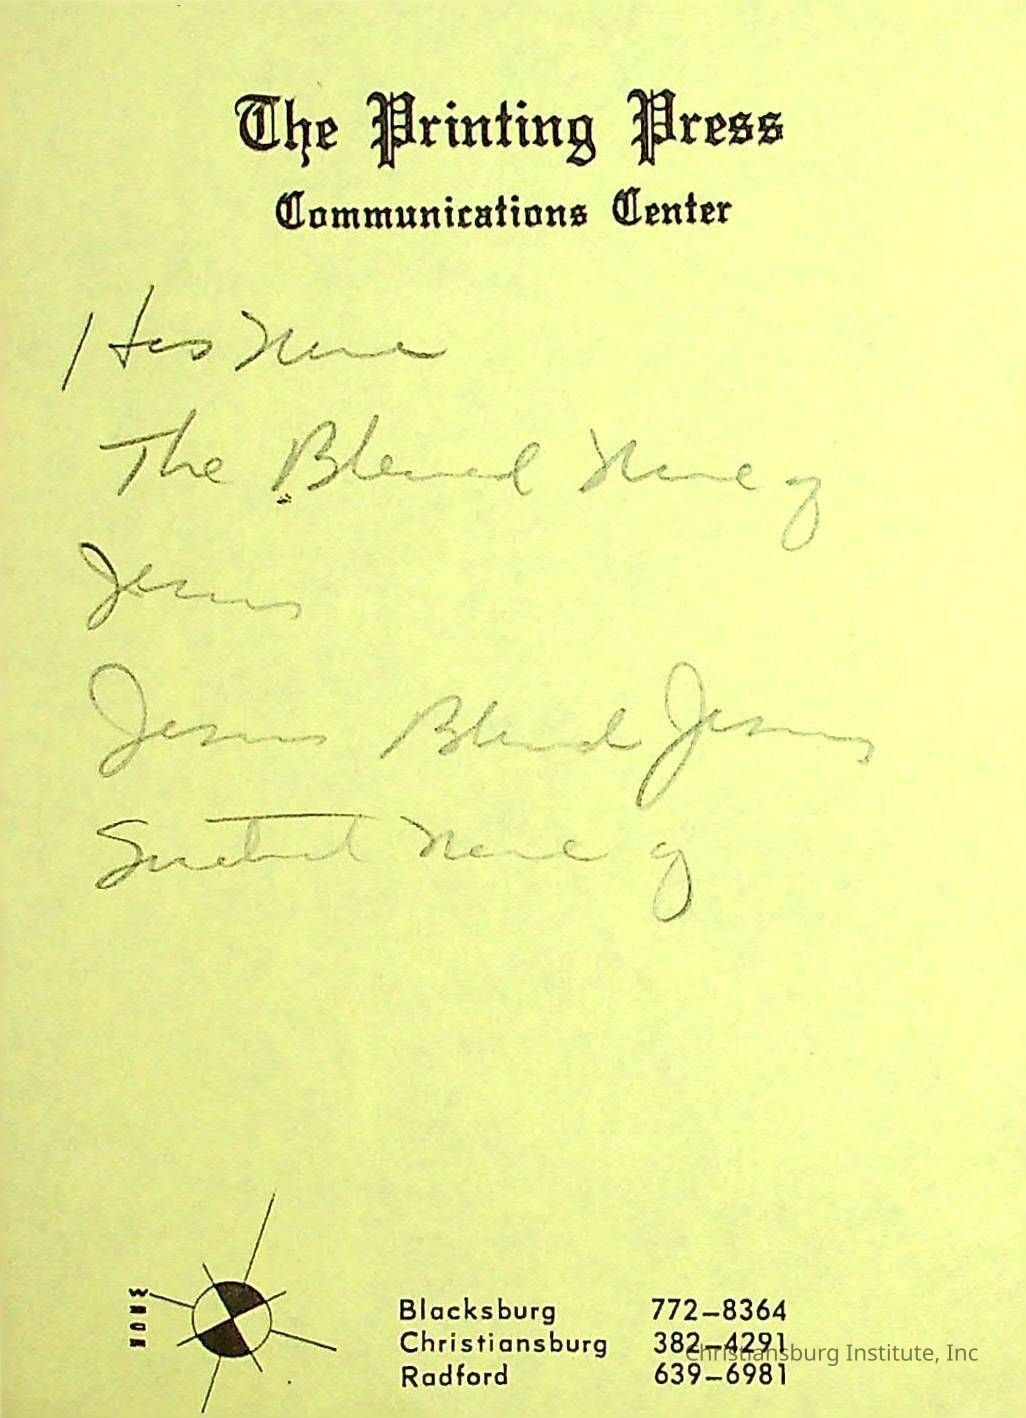 The Printing Press
Communications Center
His Name
The Blessed Name of
Jesus
Jesus Blessed Jesus
Sweetest Name of
Blacksburg 772–8364
Christiansburg 382–4291
Radford 639–6981
Christiansburg Institute, Inc